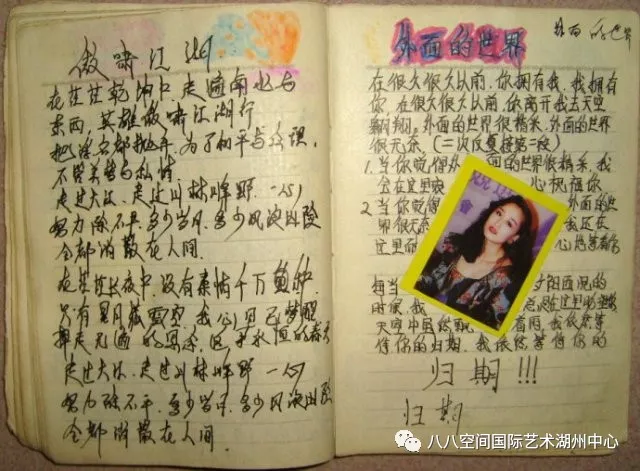 傲啸江湖
在茫茫乾坤中走遍南北与
东西，英雄傲啸江湖行
把浮名都抛弃，为了和平与公理，
不管关望与私情
走过大江、走过川林峰野、一一
努力除不平，多少岁月，多少风浪凶险
全都消散在人间．
在茫茫长夜中，没有表情千万种
只有星月
走过大江、走过川林峰野 一一
努力除不平，多少岁月，多少风浪凶险
全都消散在人间．
外面的世界
外面的世界
在很久很久以前，你拥有我，我拥有
你，在很久很久以前，你离开我去天空
翱翔，外面的世界很精采，外面的世界
很无奈，（二次反复接第二段）
1. 当你觉得外 面的世界很精采，我
会在这里衷 心祝福你
2 当你觉得 外面的世
界很无奈 我还在
这里耐 心的等着你
每当 夕阳西沉的
时候，我 在这里盼望
天空中虽然飘 着雨，我依然等
待你的归期，我依然等待你的
归期!!!
归期
八八空间国际艺术湖州中心